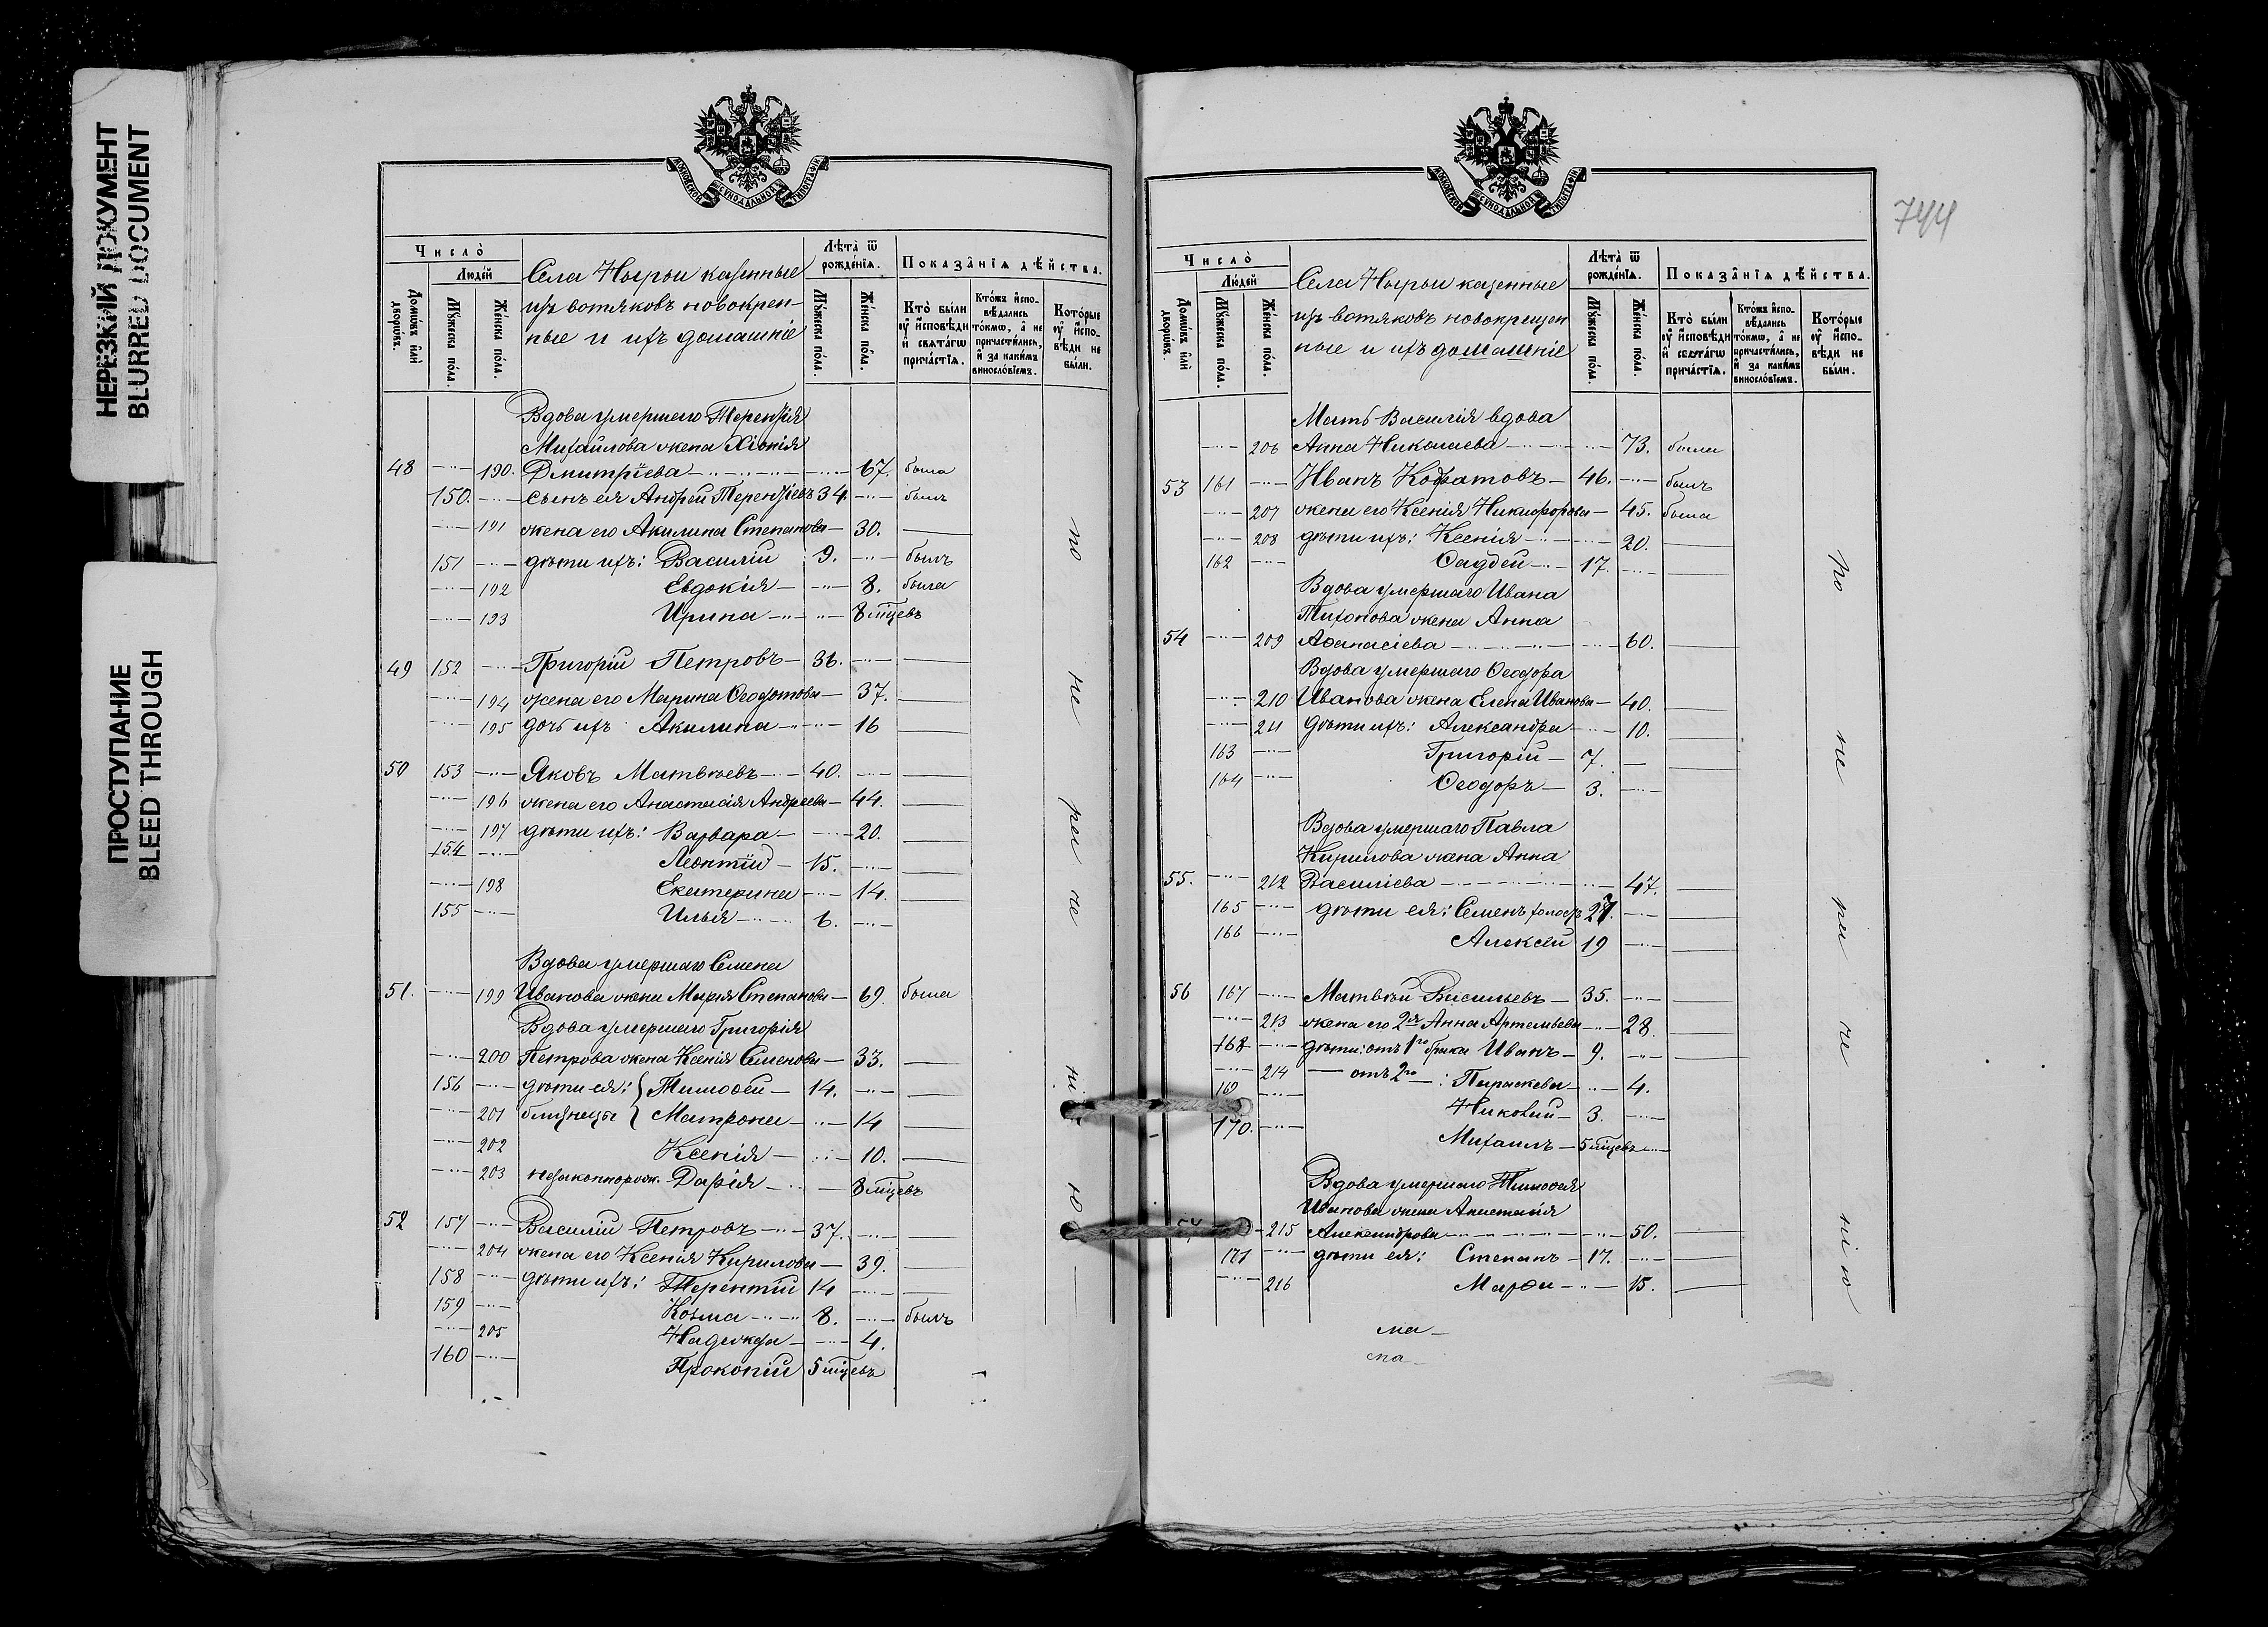 НЕРЕЗКИЙ ДОКУМЕНТ
BLURRED DOCUMENT
ПРОСТУПАНИЕ
BLEED THROUGH
МОСКОВСКОЙ СѴНОДАЛЬНОЙ ТИПОГРАФІИ
Число̀
Людей
Домѡвъ или дворѡвъ.
Мꙋжеска пола.
Женска пола.
Села Нырьи казенные
изъ вотяковъ новокрещен-
ные и ихъ домашніе
Лѣта ѿ рожденїѧ.
Мꙋжеска пола.
Женска пола.
Показанїѧ дѣйства.
Кто были ᲂу исповѣди и свѧтагѡ причастїѧ.
Ктожъ исповѣдались токмѡ, а не причастились, и за какимъ винословїемъ.
Которые ᲂу исповѣди не были.
Вдова умершаго Терентія
Михайлова жена Хіонія
48 190. Дмитріева 67. была
150. сынъ ея Андрей Терентіевъ 34. былъ
191 жена его Акилина Степанова 30.
151 дѣти ихъ: Василій 9. былъ
192 Евдокія 8. была
193 Ирина 8 мцевъ
49 152 Григорій Петровъ 36.
194 жена его Марина Ѳеодотова 37.
195 дочь ихъ Акилина 16
50 153 Яковъ Матвѣевъ 40.
196 жена его Анастасія Андреева 44.
197 дѣти ихъ: Варвара 20.
154 Леонтій 15.
198 Екатерина 14.
155 Илья 6.
Вдова умершаго Семена
51. 199 Иванова жена Марія Степанова 69. была
Вдова умершаго Григорія
200 Петрова жена Ксенія Семенова 33.
156 дѣти ея: Тимоѳей 14.
201 близнецы Матрона 14
202 Ксенія 10.
203 незаконнорож. Дарія 8 мцевъ
52 157 Василій Петровъ 37.
204 жена его Ксенія Кирилова 39.
158 дѣти ихъ: Терентій 14
159 Козма 8. былъ
205 Надежда 4.
160 Прокопій 5 мцевъ
по не ра че ні ю
744
МОСКОВСКОЙ СѴНОДАЛЬНОЙ ТИПОГРАФІИ
Число̀
Людей
Домѡвъ или дворѡвъ.
Мꙋжеска пола.
Женска пола.
Села Нырьи казенные
изъ вотяковъ новокрещен
ные и ихъ домашніе
Лѣта ѿ рожденїѧ.
Мꙋжеска пола.
Женска пола.
Показанїѧ дѣйства.
Кто были ᲂу исповѣди и свѧтагѡ причастїѧ.
Ктожъ исповѣдались токмѡ, а не причастились, и за какимъ винословїемъ.
Которые ᲂу исповѣди не были.
Мать Василія вдова
206 Анна Николаева 73. была
53 161 Иванъ 46. былъ
207 жена его Ксенія Никифорова 45. была
208 дѣти ихъ: Ксенія 20.
162 Ѳаддей 17.
Вдова умершаго Ивана
Тихонова жена Анна
54 209 Аѳанасіева 60.
Вдова умершаго Ѳеодора
210 Иванова жена Елена Иванова 40.
211 дѣти ихъ: Александра 10.
163 Григорій 7.
164 Ѳеодоръ 3.
Вдова умершаго Павла
Кирилова жена Анна
55. 212 Василіева 47.
165 дѣти ея: Семенъ холостъ 27.
166 Алексѣй 19
56 167 Матвѣй Васильевъ 35.
213 жена его 2я Анна Артемьева 28.
168 дѣти: отъ 1го брака Иванъ 9.
214 отъ 2го: Параскева 4.
169 3.
170. Михаилъ 5 мцевъ
Вдова умершаго Тимоѳея
Иванова жена Анастасія
57 215 Александрова 50.
171 дѣти ея: Степанъ 17.
216 Марѳа 15.
по не ра че ні ю